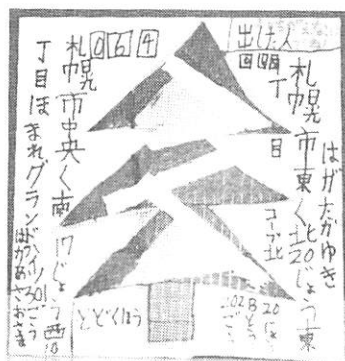 出した人
はがたかゆき
札幌市東く北20じょう東
丁目
コープ北
Bとう
202
064
札幌市中央く南17じょう西10
丁目ほまれグランドハイツ301ごう
はがあさおさま
とどくほう